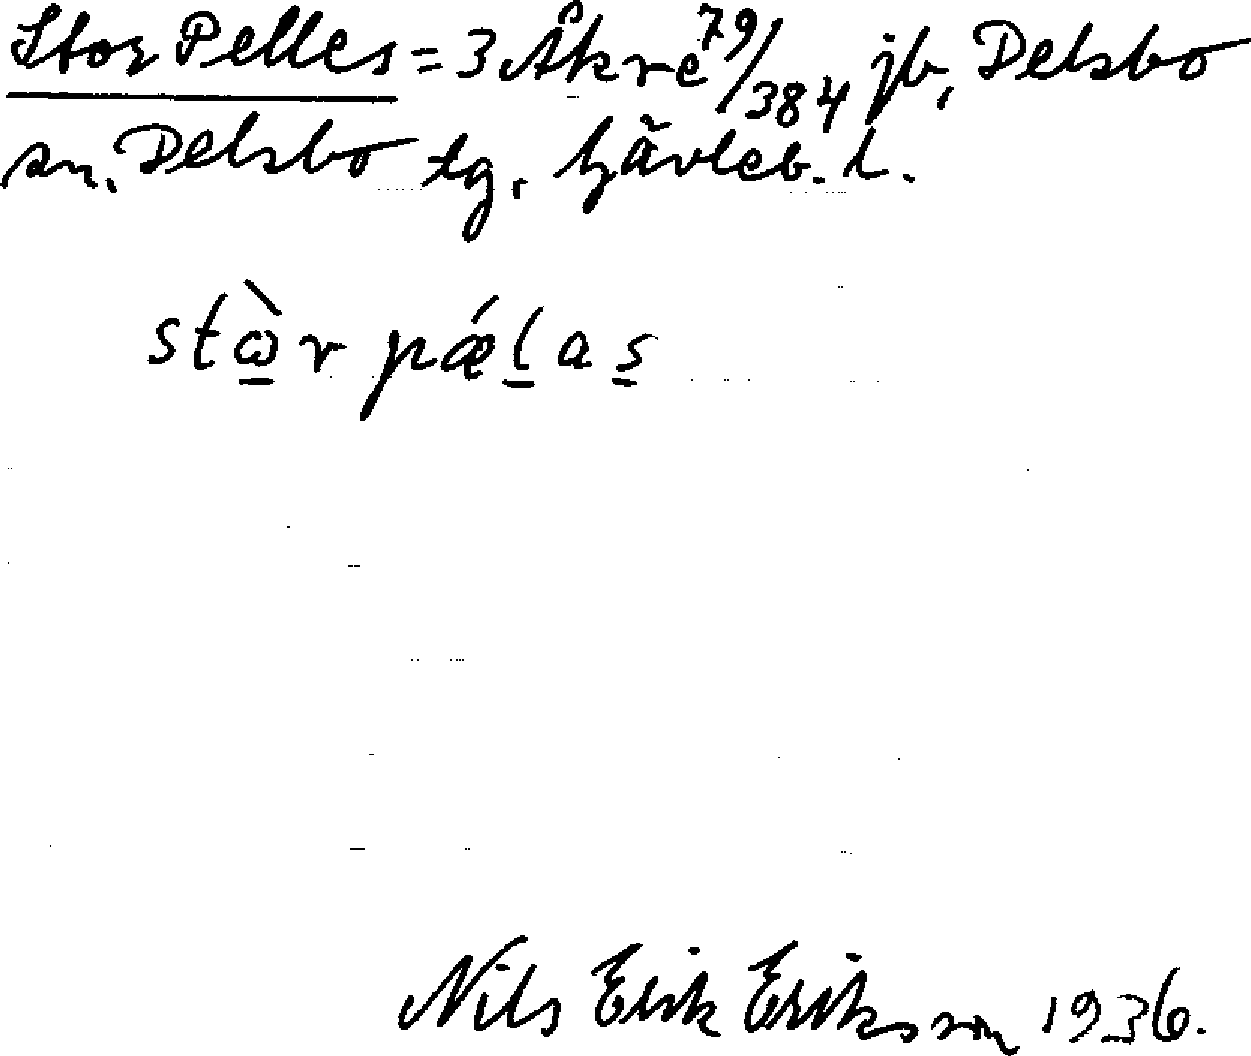 Stor Pelles = 3 Åkre 79/384 jb, Delsbo
sn. Delsbo tg. Gävleb. l.
stὼ̲r pǽl̲as̲
Nils Erik Eriksson 1936.